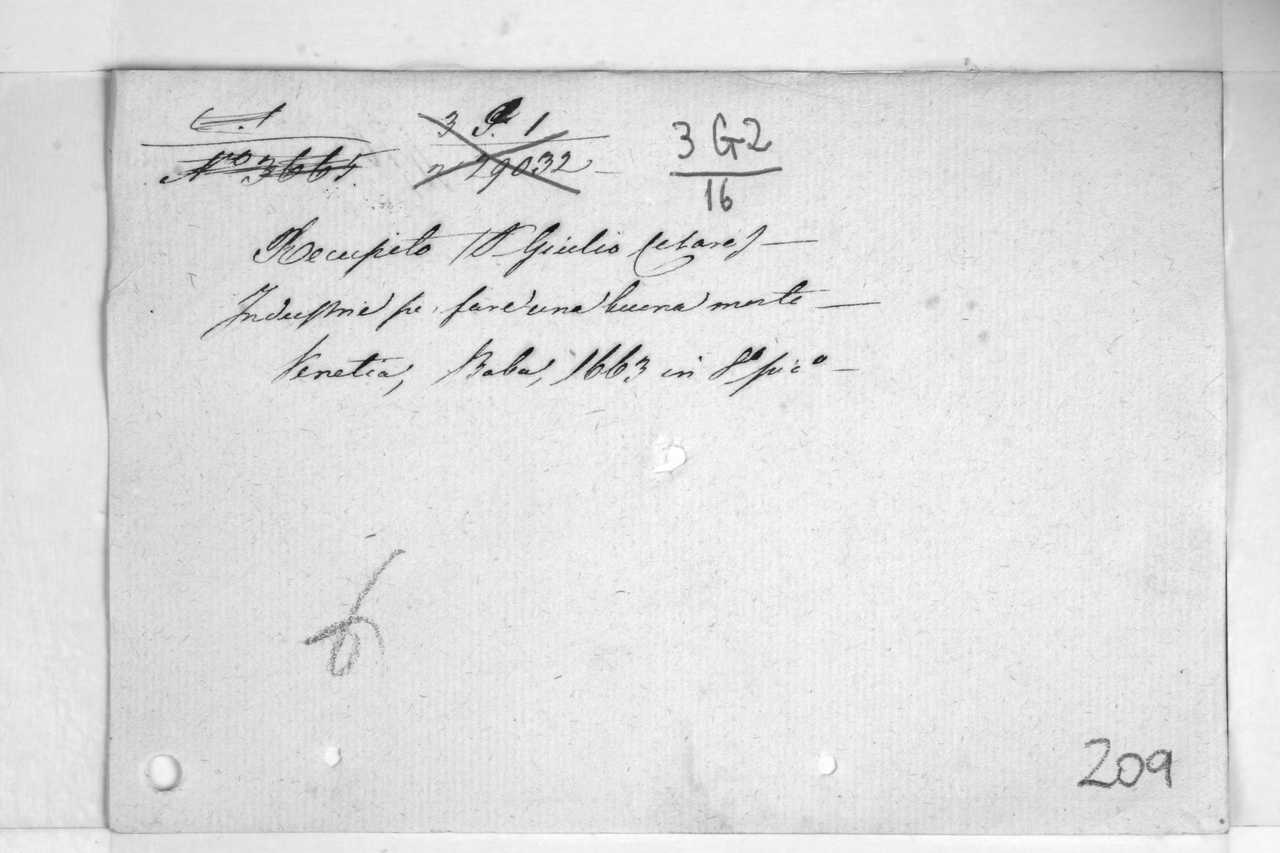 3 P. 1 3 G 2
Nº 3665 nº 29032 16
Recupito P. Giulio Cesare) —
Industrie pe fare una buona morte —
Venetia, Baba, 1663 in 8º picº —
209